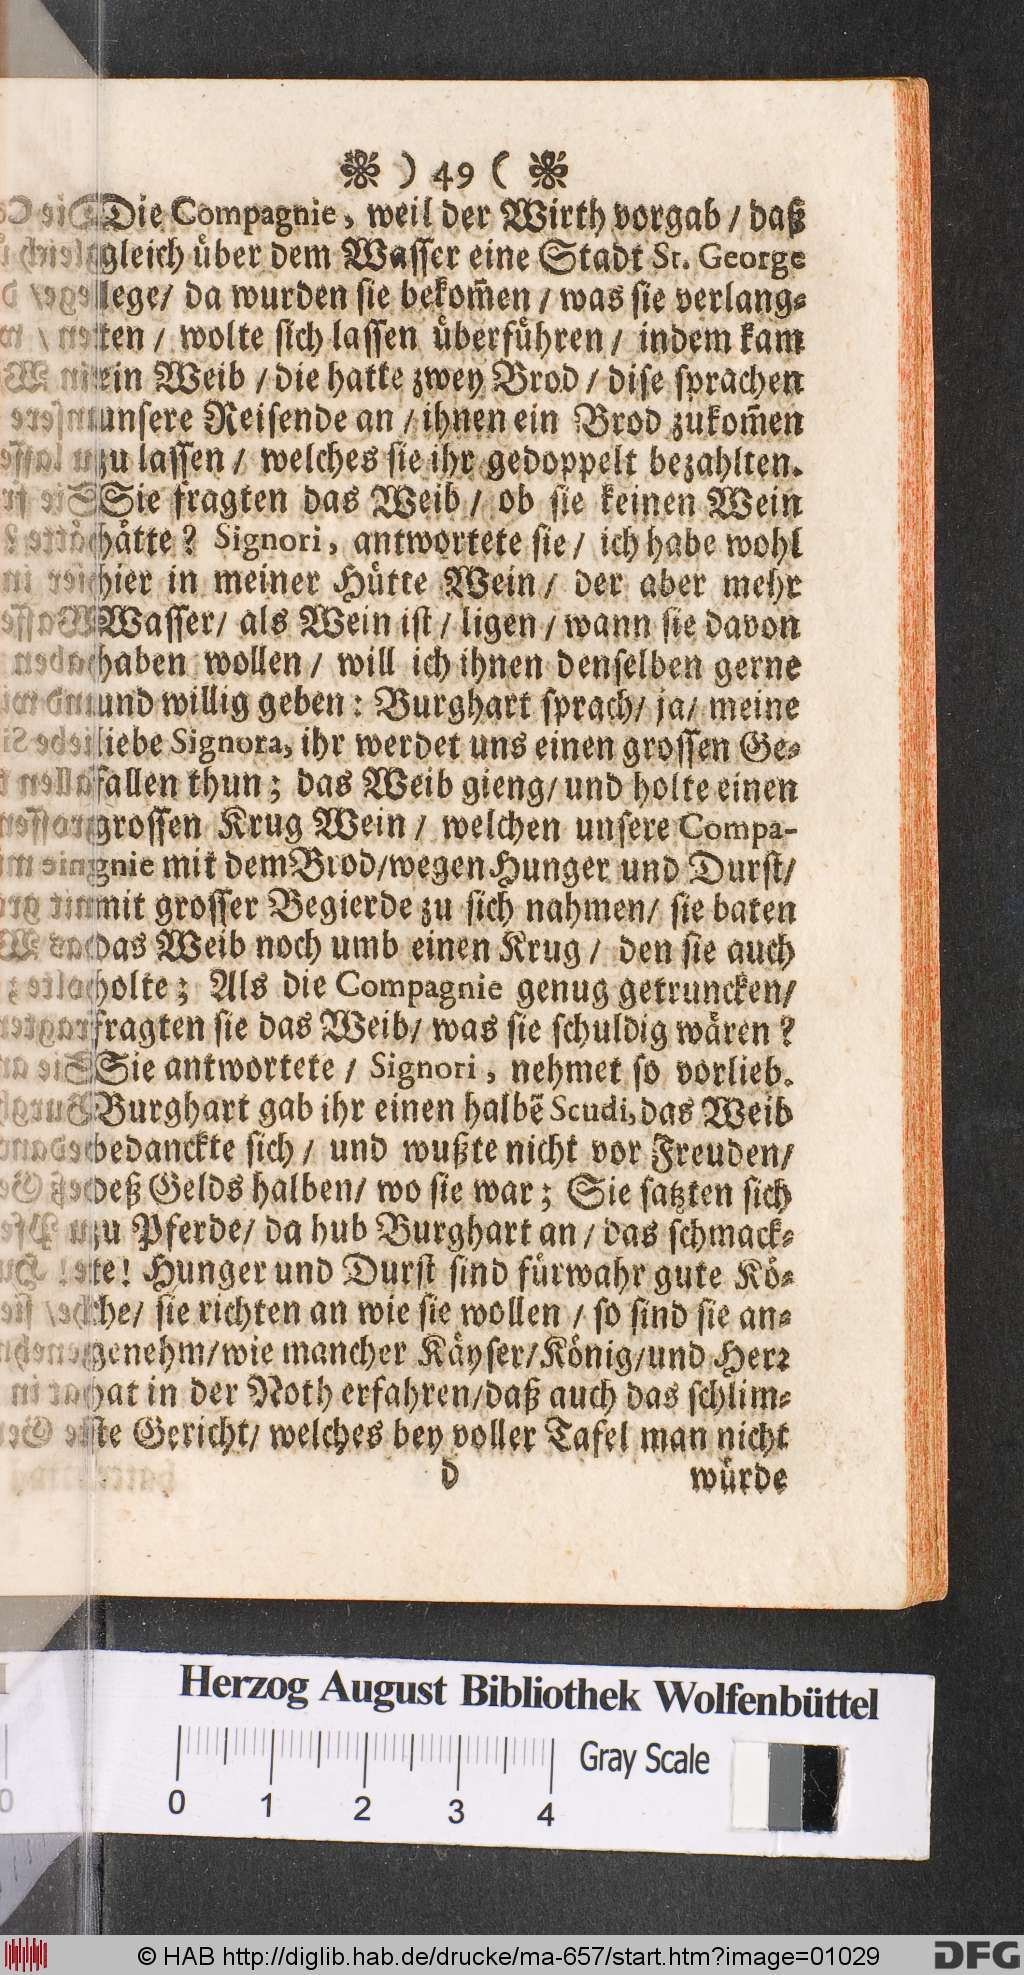 ) 49 (
Die Compagnie, weil der Wirth vorgab / daß
gleich über dem Wasser eine Stadt St. George
lege/ da wurden sie bekom̃en / was sie verlang-
ten / wolte sich lassen überführen / indem kam
ein Weib / die hatte zwey Brod / dise sprachen
unsere Reisende an / ihnen ein Brod zukom̃en
zu lassen / welches sie ihr gedoppelt bezahlten.
Sie fragten das Weib / ob sie keinen Wein
hätte? Signori, antwortete sie / ich habe wohl
hier in meiner Hütte Wein / der aber mehr
Wasser/ als Wein ist / ligen / wann sie davon
haben wollen / will ich ihnen denselben gerne
und willig geben: Burghart sprach/ ja/ meine
liebe Signora, ihr werdet uns einen grossen Ge-
fallen thun; das Weib gieng/ und holte einen
grossen Krug Wein / welchen unsere Compa-
gnie mit dem Brod/wegen Hunger und Durst/
mit grosser Begierde zu sich nahmen/ sie baten
das Weib noch umb einen Krug / den sie auch
holte; Als die Compagnie genug getruncken/
fragten sie das Weib/ was sie schuldig wären?
Sie antwortete / Signori, nehmet so vorlieb.
Burghart gab ihr einen halbẽ Scudi, das Weib
bedanckte sich / und wußte nicht vor Freuden/
deß Gelds halben/ wo sie war; Sie satzten sich
zu Pferde/ da hub Burghart an / das schmack-
te! Hunger und Durst sind fürwahr gute Kö-
che/ sie richten an wie sie wollen / so sind sie an-
genehm/wie mancher Käyser/König/und Herr
hat in der Noth erfahren/daß auch das schlim-
ste Gericht/ welches bey voller Tafel man nicht
d würde
Herzog August Bibliothek Wolfenbüttel
Gray Scale
0 1 2 3 4
© HAB http://diglib.hab.de/drucke/ma-657/start.htm?image=01029
DFG